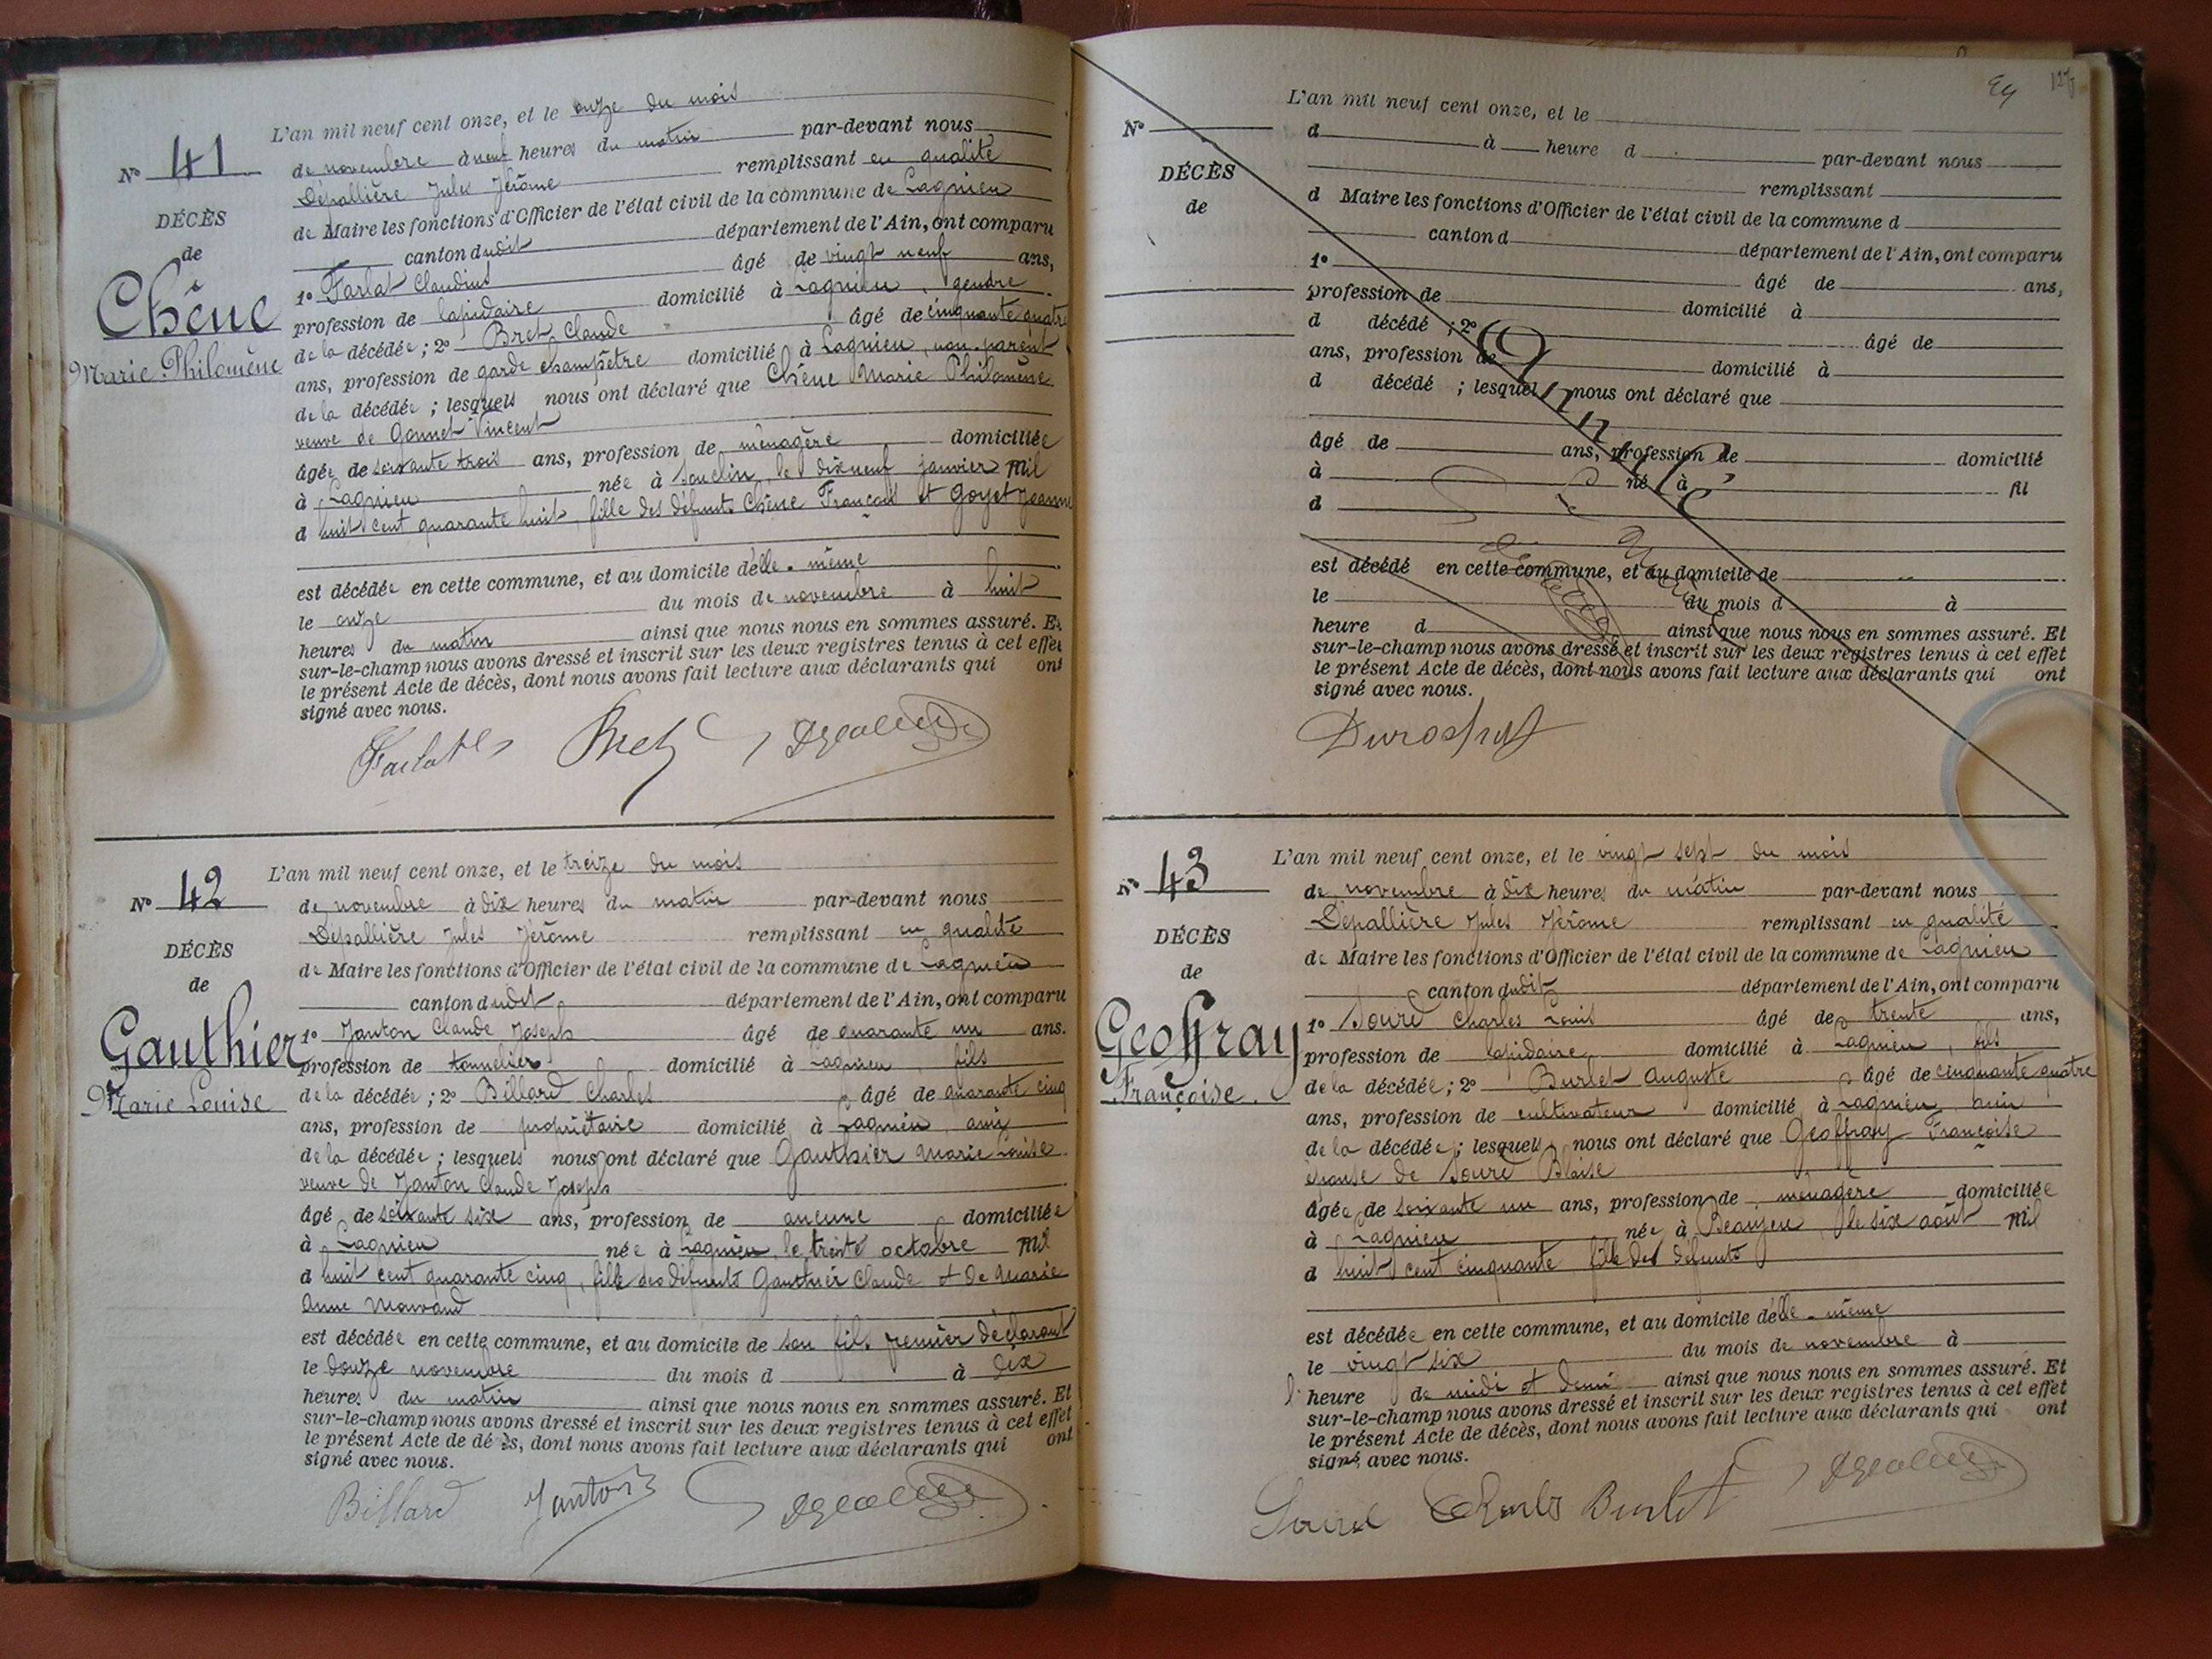 L'an mil neuf cent onze, et le onze du mois
N° 41
de novembre à neuf heures du matin par-devant nous
Dépallière Jules Jérôme remplissant en qualité
DÉCÈS
de Maire les fonctions d'Officier de l'état civil de la commune de Lagnieu
de
canton dudit département de l'Ain, ont comparu
Chêne
1° Farlat Claudius âgé de vingt neuf ans,
Marie Philomène
profession de lapidaire domicilié à Lagnieu, gendre
de la décédée ; 2° Bret Claude âgé de cinquante quatre
ans, profession de garde champêtre domicilié à Lagnieu, non parent
de la décédée ; lesquels nous ont déclaré que Chêne Marie Philomène
veuve de Gonnet Vincent
âgée de soixante trois ans, profession de ménagère domiciliée
à Lagnieu née à Souclin, le dix neuf janvier mil
d huit cent quarante huit, fille des défunts Chêne François et Goyet Jeanne
est décédée en cette commune, et au domicile d'elle-même
le onze du mois de novembre à huit
heures du matin ainsi que nous nous en sommes assuré. Et
sur-le-champ nous avons dressé et inscrit sur les deux registres tenus à cet effet
le présent Acte de décès, dont nous avons fait lecture aux déclarants qui ont
signé avec nous.
Farlat Bret
L'an mil neuf cent onze, et le treize du mois
N° 42
de novembre à dix heures du matin par-devant nous
Dépallière Jules Jérôme remplissant en qualité
DÉCÈS
de Maire les fonctions d'Officier de l'état civil de la commune de Lagnieu
de
canton dudit département de l'Ain, ont comparu
Gauthier
1° Janton Claude Joseph âgé de quarante un ans.
profession de tonnelier domicilié à Lagnieu, fils
Marie Louise
de la décédée ; 2° Billard Charles âgé de quarante cinq
ans, profession de propriétaire domicilié à Lagnieu, ami
de la décédée ; lesquels nous ont déclaré que Gauthier Marie Louise
veuve de Janton Claude Joseph
âgé de soixante six ans, profession de aucune domiciliée
à Lagnieu née à Lagnieu, le trente octobre mil
d huit cent quarante cinq, fille des défunts Gauthier Claude et de Marie
Anne
est décédée en cette commune, et au domicile de son fils premier déclarant
le douze novembre du mois d à dix
heures du matin ainsi que nous nous en sommes assuré. Et
sur-le-champ nous avons dressé et inscrit sur les deux registres tenus à cet effet
le présent Acte de dé ès, dont nous avons fait lecture aux déclarants qui ont
signé avec nous.
Billard Janton
L'an mil neuf cent onze, et le
N°
d à heure d par-devant nous
remplissant
DÉCÈS
d Maire les fonctions d'Officier de l'état civil de la commune d
de
canton d département de l'Ain, ont comparu
1° âgé de ans,
profession de domicilié à
d décédé ; 2° âgé de
ans, profession de domicilié à
d décédé ; lesquel nous ont déclaré que
Annulé
âgé de ans, profession de domicilié
à né à fil
d
est décédé en cette commune, et au domicile de
le du mois d à
heure d ainsi que nous nous en sommes assuré. Et
sur-le-champ nous avons dressé et inscrit sur les deux registres tenus à cet effet
le présent Acte de décès, dont nous avons fait lecture aux déclarants qui ont
signé avec nous.
L'an mil neuf cent onze, et le vingt sept du mois
N° 43
de novembre à dix heures du matin par-devant nous
Dépallière Jules Jérôme remplissant en qualité
DÉCÈS
de Maire les fonctions d'Officier de l'état civil de la commune de Lagnieu
de
canton dudit département de l'Ain, ont comparu
Geoffray
1° Sourd Charles Louis âgé de trente ans,
profession de lapidaire domicilié à Lagnieu, fils
Françoise.
de la décédée ; 2° Burlet Auguste âgé de cinquante quatre
ans, profession de cultivateur domicilié à Lagnieu,
de la décédée ; lesquels nous ont déclaré que Geoffray Françoise
épouse de Sourd Blaise
âgée de soixante un ans, profession de ménagère domiciliée
à Lagnieu née à Beaujeu, le six août mil
d huit cent cinquante fille des défunts
est décédée en cette commune, et au domicile d'elle-même
le vingt six du mois de novembre à
l'heure de midi et demi ainsi que nous nous en sommes assuré. Et
sur-le-champ nous avons dressé et inscrit sur les deux registres tenus à cet effet
le présent Acte de décès, dont nous avons fait lecture aux déclarants qui ont
signé avec nous.
Sourd Charles Burlet